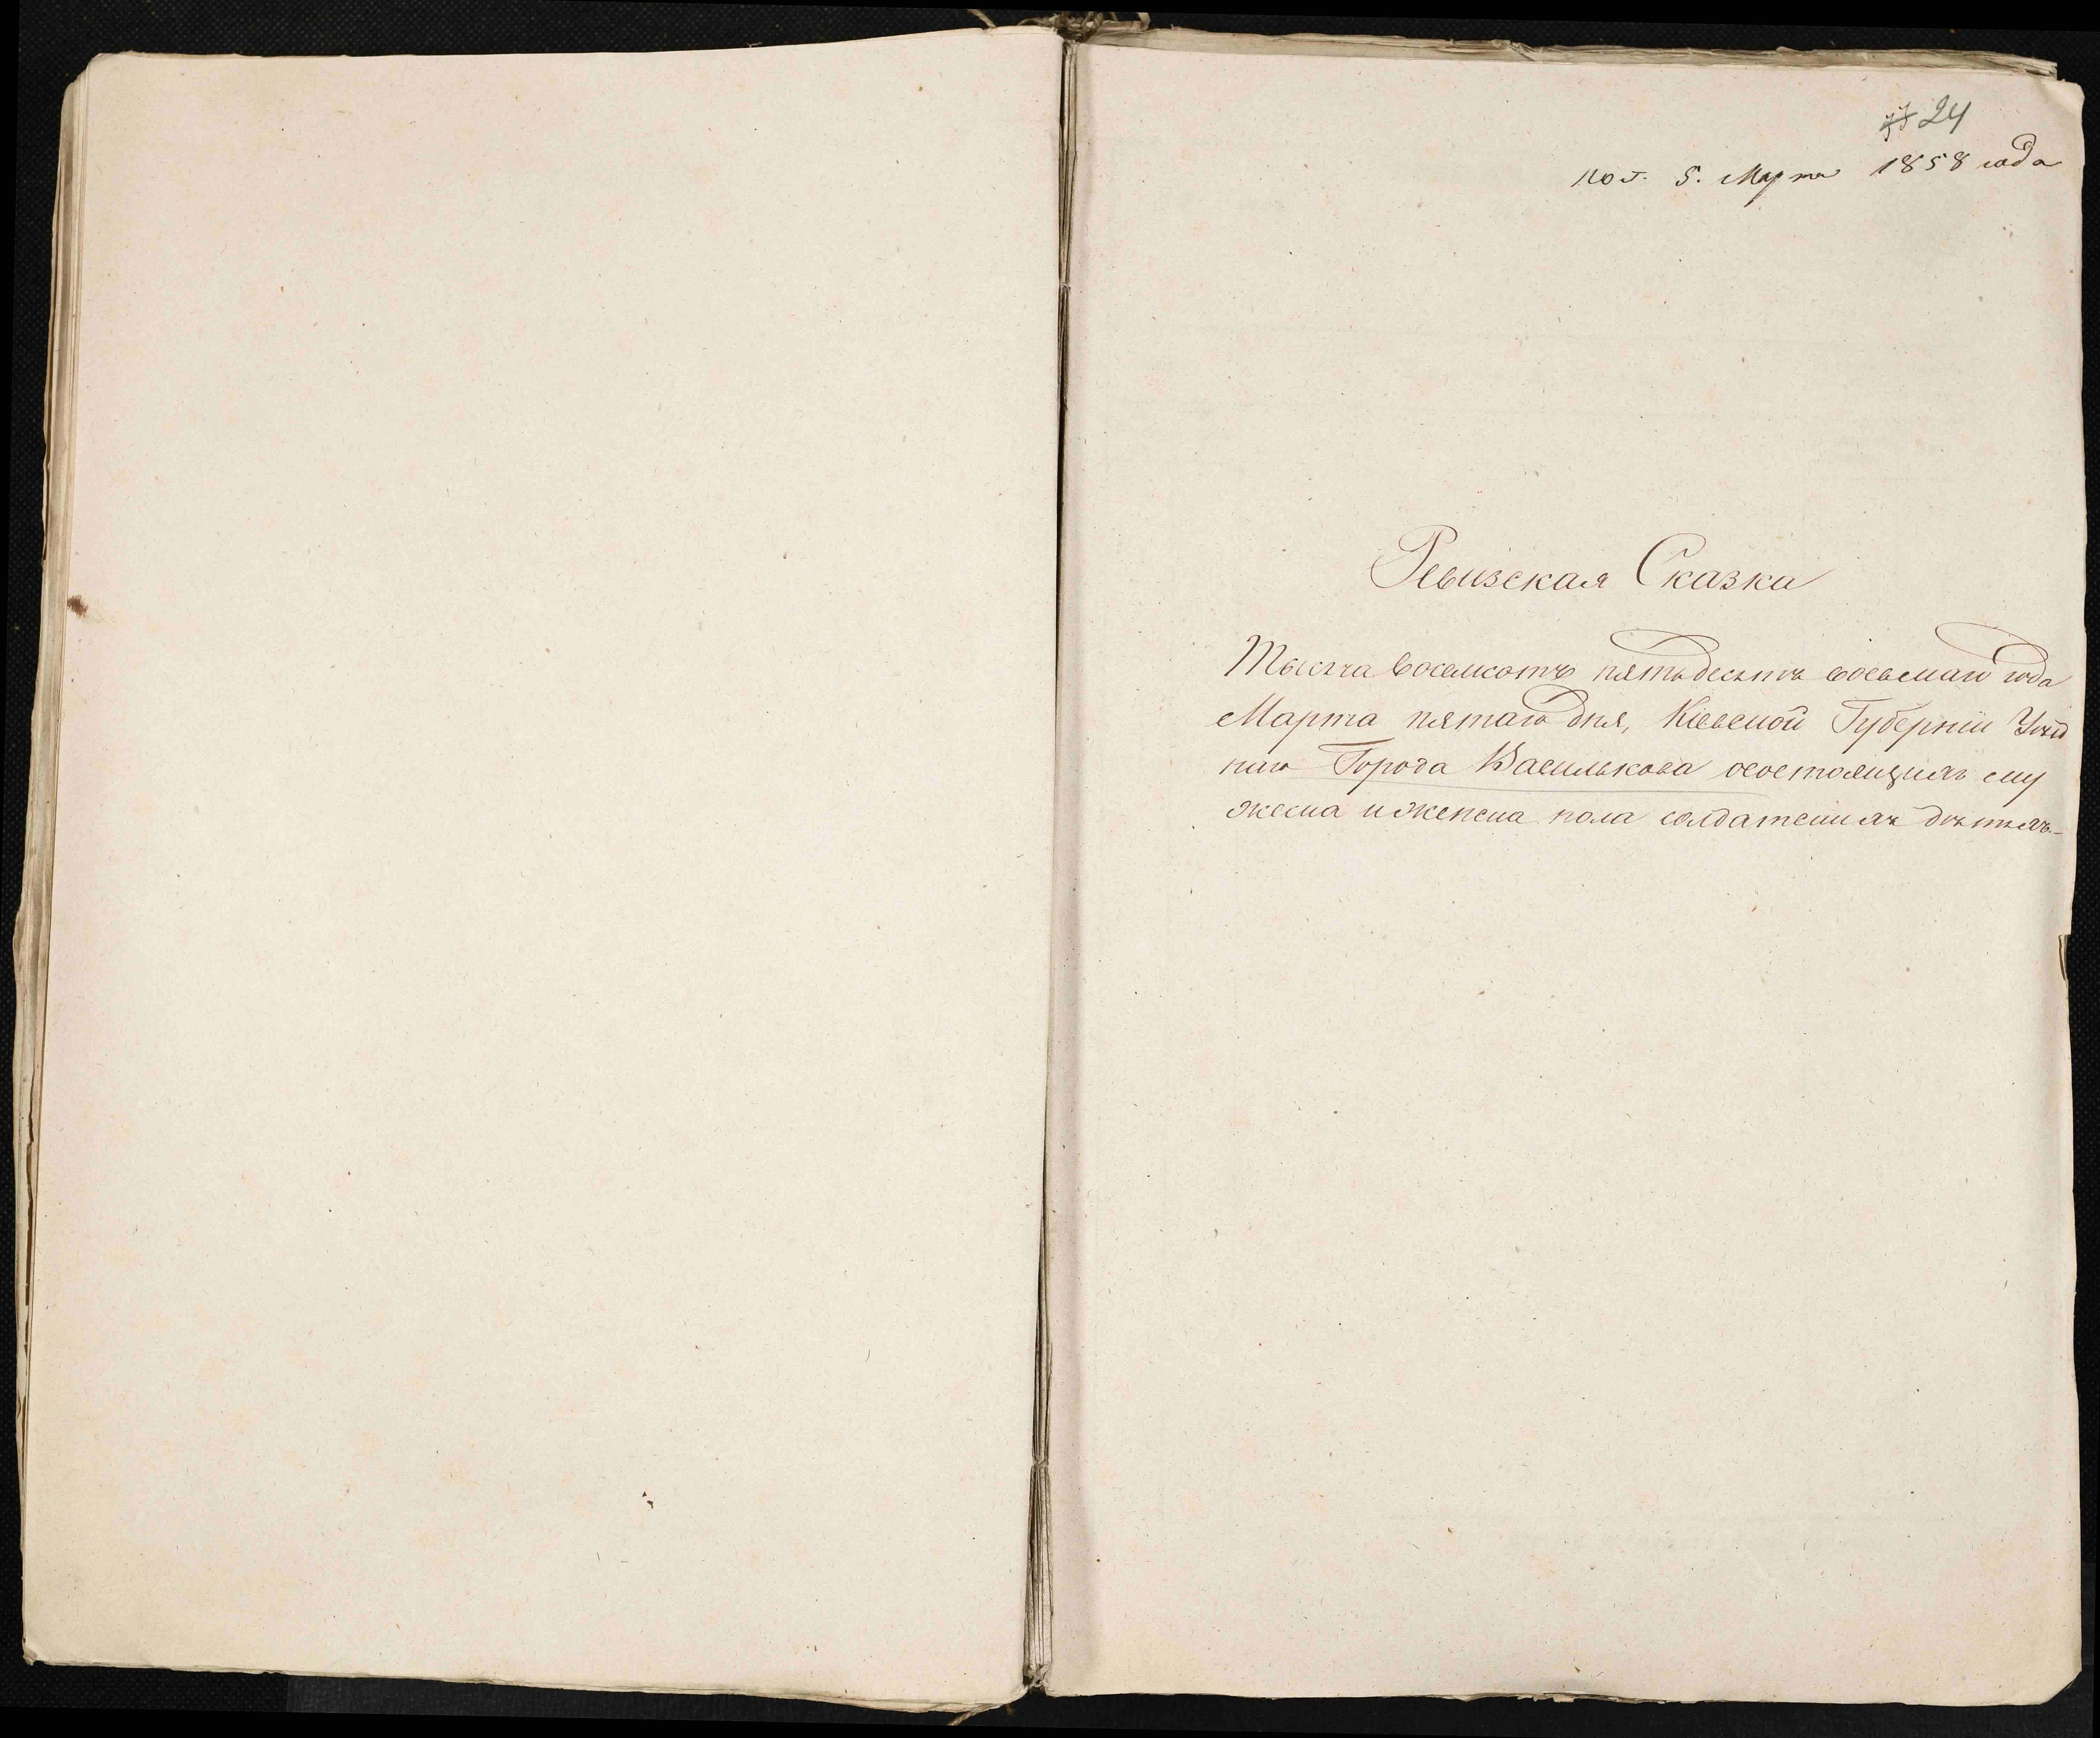 24
пол. 5. Марта 1858 года
Ревизская Сказка
Тысяча восемсотъ пятьдесятъ восьмаго года
Марта пятаго дня, Кіевской Губерніи Уѣзд
наго Города Василькова осостоящихъ му
жеска и женска пола солдатскихъ дѣтяхъ.-